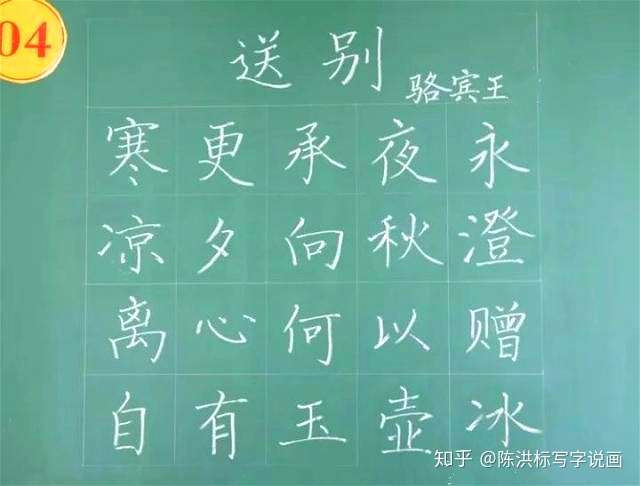 04
送别
骆宾王
寒更承夜永
凉夕向秋澄
离心何以赠
自有玉壶冰
知乎 @陈洪标写字说画